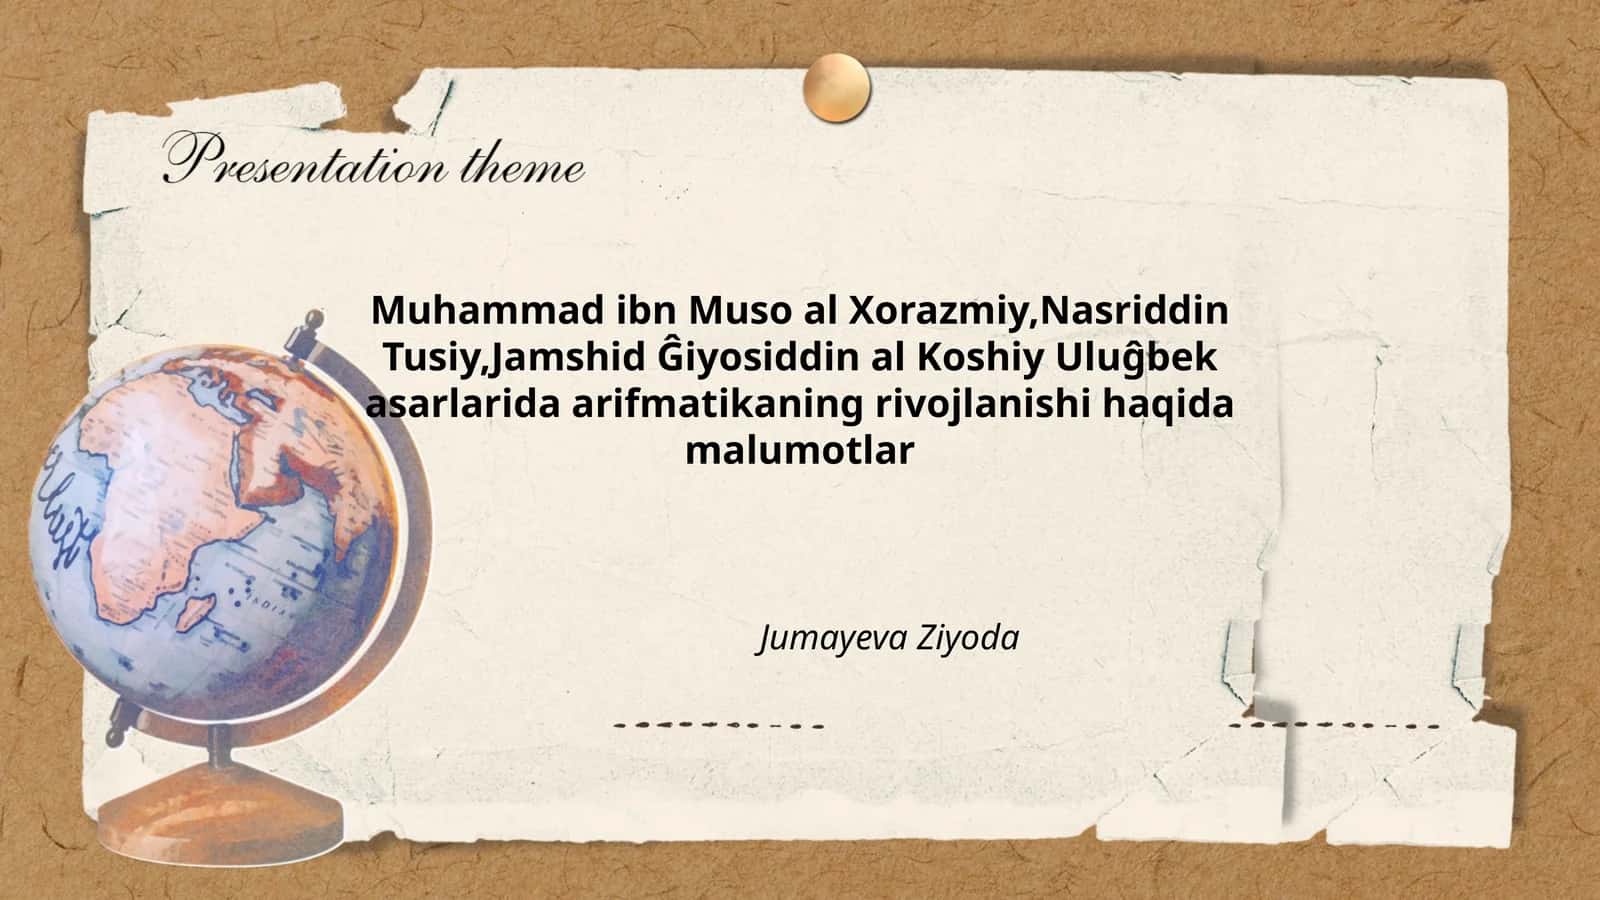 Presentation theme
Muhammad ibn Muso al Xorazmiy,Nasriddin
Tusiy,Jamshid Ĝiyosiddin al Koshiy Uluĝbek
asarlarida arifmatikaning rivojlanishi haqida
malumotlar
Jumayeva Ziyoda